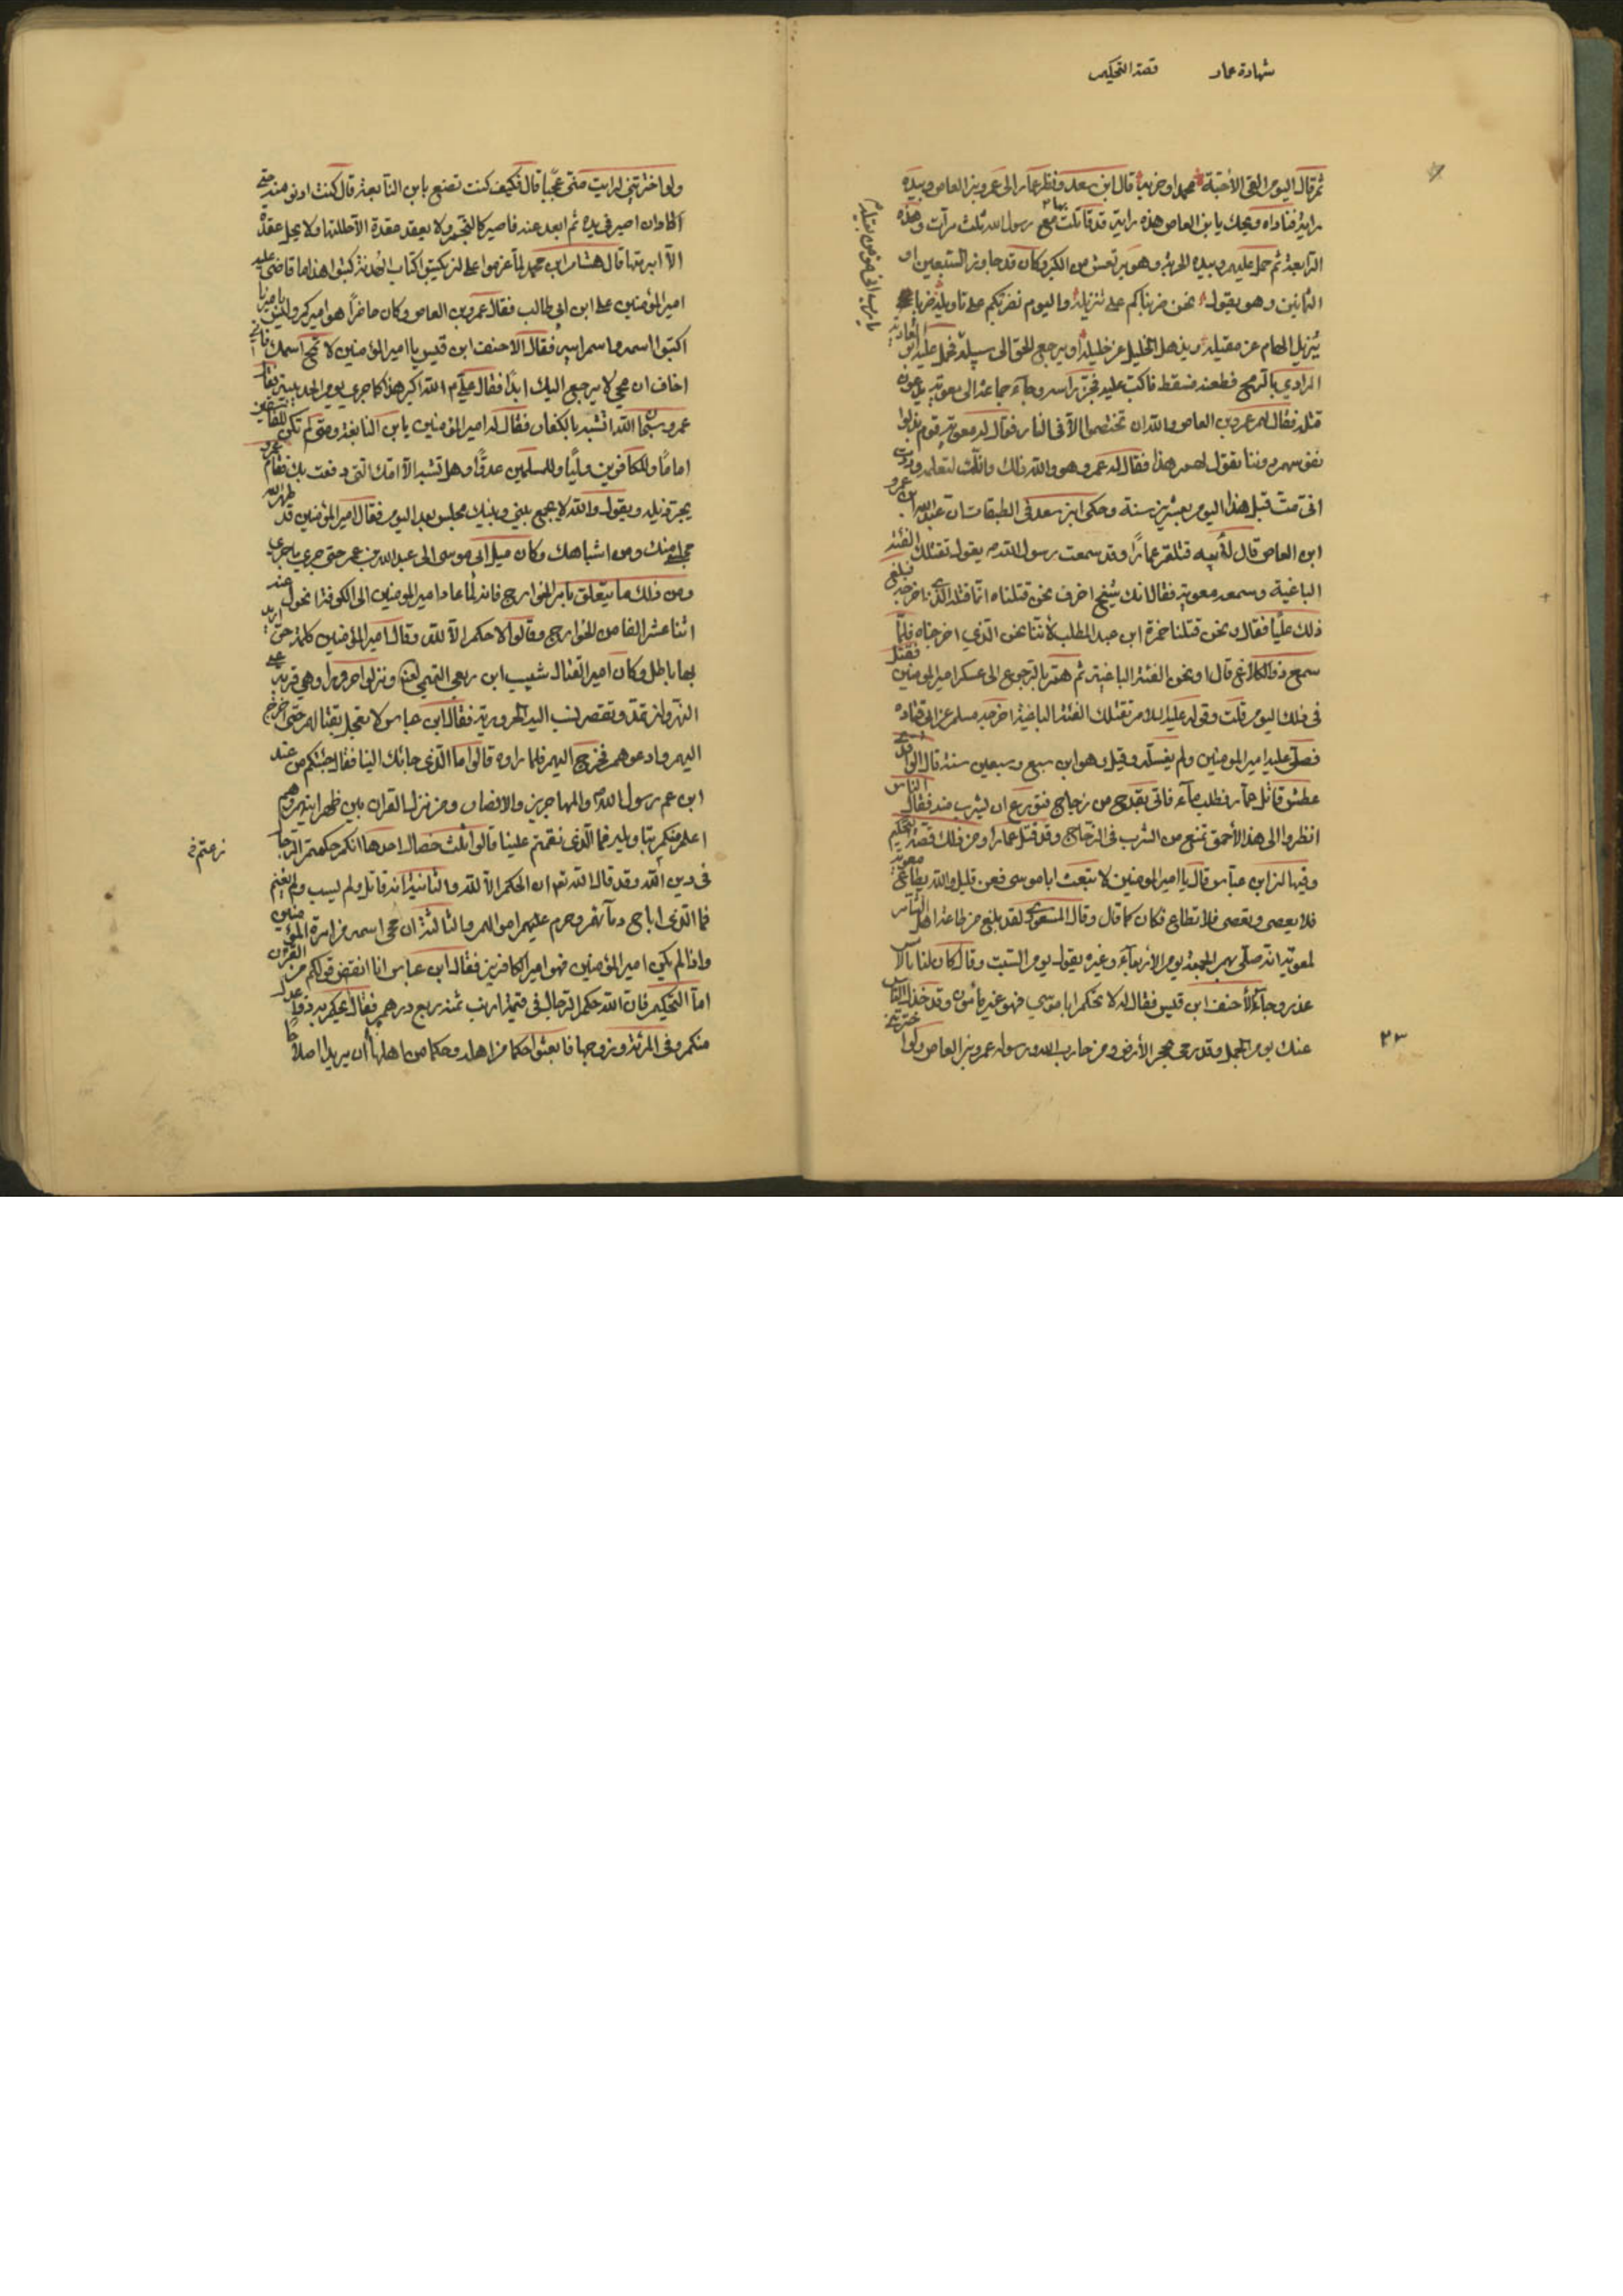 شهادة عمار قصة التحكيم
ثم قال اليوم القى الأحبة محمدا وحزبه قال ابن سعد ونظر عمار الى عمرو بن العاص وبيده
راية فناداه ويحك يابن العاص هذه راية قد قاتلت بها مع رسول الله ثلث مرات وهذه
الرابعة ثم حمل عليهم وبيده الحربة وهو يرتعش من الكبر وكان قد جاوز السبعين او
الثمانين وهو يقول نحن ضربناكم على تنزيله واليوم نضربكم على تاويله ضربا
يزيل الهام عن مقيله ويذهل الخليل عن خليله او يرجع الحق الى سبيله فحمل عليه ابن العادية
يا رب انى مؤمن بقيله
المرادي بالرمح فطعنه فسقط فاكب عليه فجز راسه وجاء جماعة الى معوية يدعون
قتله فقال لهم عمرو بن العاص والله ان تختصموا الا فى النار فقال له معوية قوم بذلوا
نفوسهم دوننا تقول لهم هذا فقال له عمرو هو والله ذلك وانك لتعلمه ووددت
انى مت قبل هذا اليوم بعشرين سنة وحكى ابن سعد فى الطبقات ان عبد الله بن عمرو
ابن العاص قال لأبيه قتلتم عمارا وقد سمعت رسول الله يقول تقتلك الفئة
الباغية وسمعه معوية فقال انك شيخ اخرف نحن قتلناه انما قتله الذى اخرجه فبلغ
ذلك عليا فقال ونحن قتلنا حمزة ابن عبد المطلب لأننا نحن الذي اخرجناه فلما
سمع ذو الكلاع قال او نحن الفئة الباغية ثم هم بالرجوع الى عسكر امير المومنين فقتل
فى ذلك اليوم قلت وقوله عليه السلام تقتلك الفئة الباغية اخرجه مسلم عن ابى قتاده
فصلى عليه امير المومنين ولم يغسله وقيل وهو ابن سبع وسبعين سنة قال الواقدى
عطش قاتل عمار فطلب ماء فاتى بقدح من زجاج فتورع ان يشرب منه فقال الناس
انظروا الى هذا الأحمق تمنع من الشرب فى الزجاج وقد قتل عمارا ومن ذلك قصة التحكيم
وفيها ان ابن عباس قال يا امير المومنين لا تبعث ابا موسى فعن قليل والله يطاع معوية
فلا يعصى وتعصى فلا تطاع فكان كما قال وقال المسعودي لقد بلغ من طاعة اهل الشام
لمعوية انه صلى بهم الجمعة يوم الأربعاء وغيره يقول يوم السبت وقال كان لنا بالأمس
عذر وجاء الأحنف ابن قيس فقال له لا تحكم ابا موسى فهو غير مأمون وقد خذل الناس
عنك يوم الجمل وقد رمي بحجر الأرض ومن حارب الله ورسوله عمرو بن العاص ولو اخترتنى
٢٣
ولو اخترتنى لرايت منى عجبا قال فكيف كنت تصنع بابن النابغة قال كنت ادنو منه حتى
اكاد ان اصير فى يده ثم ابعد عنه فاصير كالنجم ولا يعقد عقدة الا حللتها ولا يحل عقدة
الا ابرمتها قال هشام ابن محمد لما عزموا على ان يكتبوا كتاب الهدنة كتبوا هذا ما قاضى عليه
امير المؤمنين على ابن ابى طالب فقال عمرو بن العاص وكان حاضرا هو اميركم وليس باميرنا
اكتبوا اسمه واسم ابيه فقال الاحنف ابن قيس يا امير المؤمنين لا تمح اسمك فانى
اخاف ان محي لا يرجع اليك ابدا فقال علي الله اكبر هذا كما جرى يوم الحديبية فقال
عمرو سبحان الله اتشبه بالكفار فقال له امير المؤمنين يابن النابغة ومتى لم تكن للفاسقين
اماما وللكافرين وليا وللمسلمين عدوا وهل تشبه الا امك التى دفعت بك فقام عمرو
يجر ذيله ويقول والله لا يجمع بيني وبينك مجلس بعد اليوم فقال امير المؤمنين قد طهر الله
مجلسي منك ومن اشباهك وكان ميل ابى موسى الى عبد الله بن عمر حتى جرى ما جرى
ومن ذلك ما يتعلق بامر الخوارج فانه لما عاد امير المومنين الى الكوفة انخزل عنه
اثنا عشر الفا من الخوارج وقالوا لا حكم الا لله وقال امير المؤمنين كلمة حق اريد
بها باطل وكان امير القتال شبيب ابن ربعى التميمي لعنه ونزلوا حرورا وهي قرية على
النهروان تمد وتقصر ينسب اليه الحرورية فقال ابن عباس لا تعجل بقتالهم حتى اخرج
اليهم وادعوهم فخرج اليهم فلما راوه قالوا ما الذى جائك الينا فقال جئتكم من عند
ابن عم رسول الله والمهاجرين والانصار ومن نزل القران بين ظهرانيهم وهم
اعلم منكم بتاويله فما الذى نقمتم علينا قالوا ثلث خصال احدها انكم حكمتم الرجال
زعمتم
فى دين الله وقد قال الله تع ان الحكم الا لله والثانية انه قاتل ولم يسب ولم يغنم
فما الذى اباح دمآئهم وحرم عليهم اموالهم والثالثة ان محى اسمه من امرة المؤمنين
واذا لم يكن امير المؤمنين فهو امير الكافرين فقال ابن عباس انا انقض قولكم من القرآن
اما التحكيم فان الله حكم الرجال فى قيمة ارنب ثمنه ربع درهم فقال يحكم به ذوا عدل
منكم وفى المرئة وزوجها فابعثوا حكما من اهله وحكما من اهلها ان يريدا اصلاحا